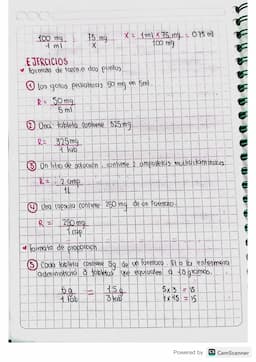 100 mg = 75 mg X = 1ml x 75 mg = 0.75 ml
1 ml X 100 mg
EJERCICIOS
formato de razón o dos puntos
① Las gotas pediatricas 50 mg en 5ml
R = 50mg
5 ml
② Una tableta contiene 325mg
R = 325mg
1 tab
③ Un litro de solución, contiene 2 ampolletas multivitaminicas
R = 2 amp
1L
④ Una capsula contiene 250 mg de un farmaco.
R = 250mg
1 cap
formato de proporción
⑤ Cada tableta contiene 5g de un farmaco. Si la enfermera
administró 3 tabletas que equivalen a 15 gramos.
= 15g 5 x 3 = 15
1 tab 3 tab 1 x 15 = 15
Powered by CamScanner